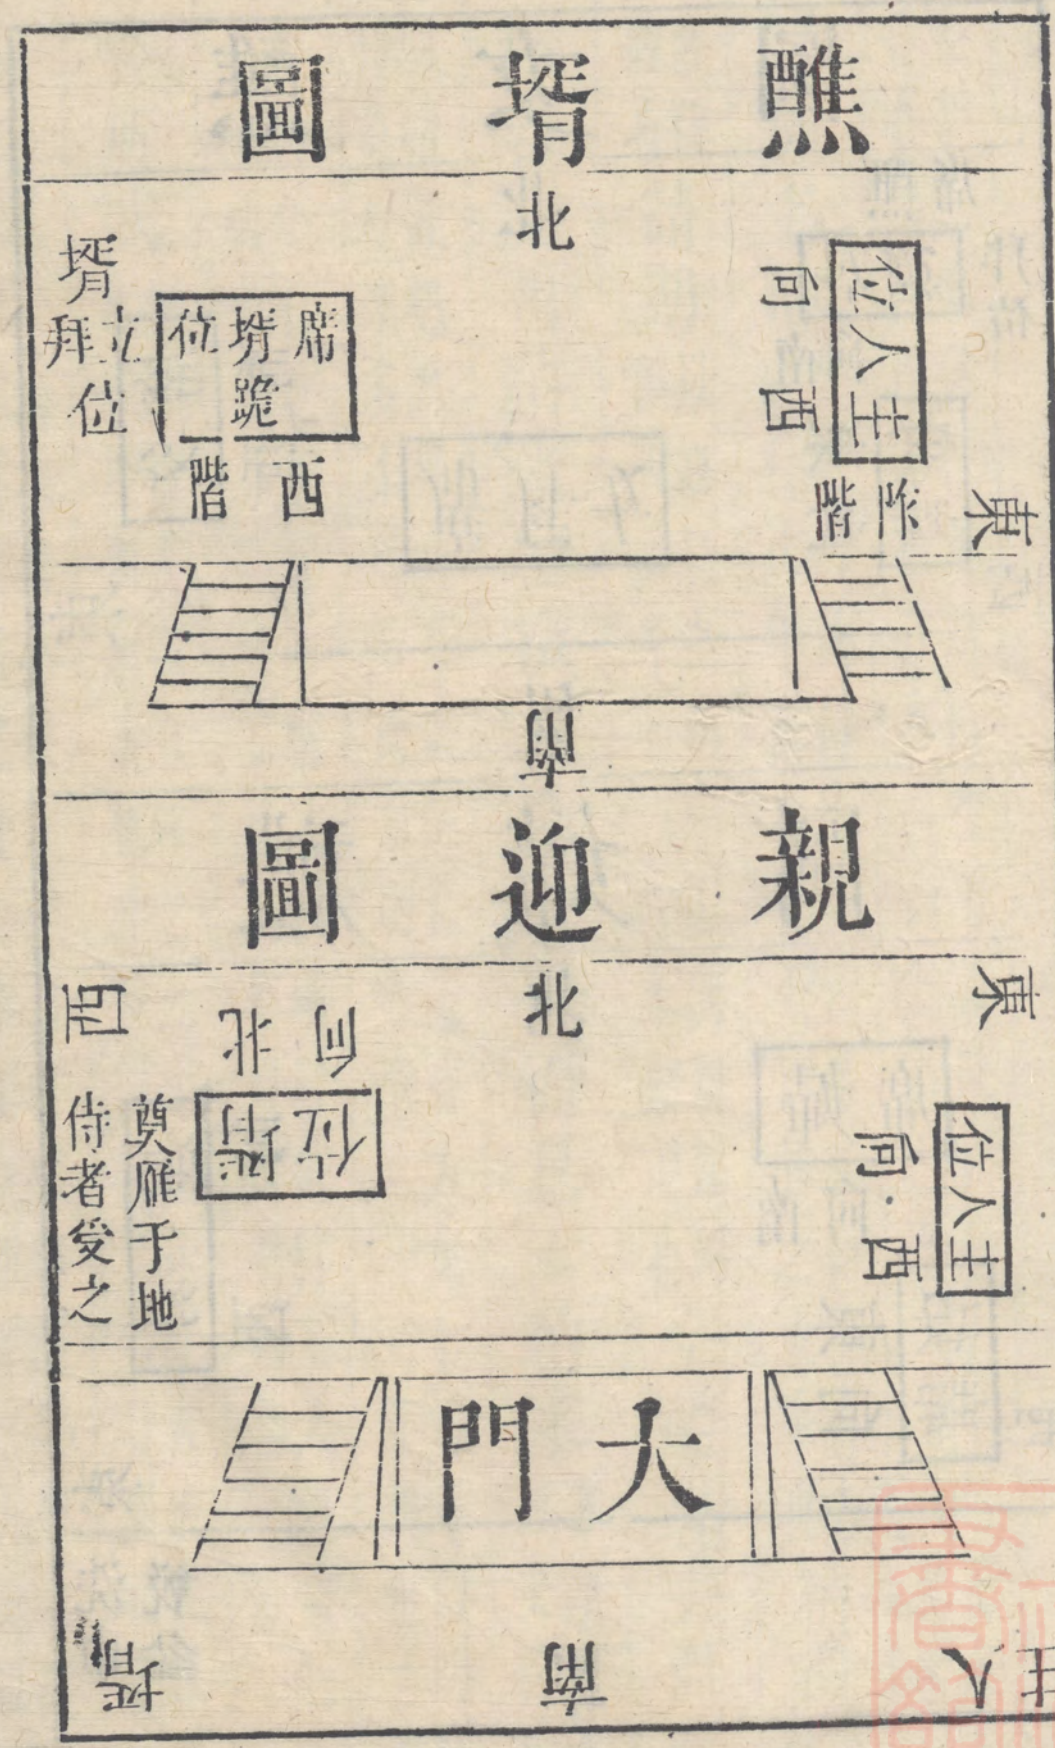 醮壻圖
北
主人位
西向
東
阼階
席
壻跪
位
壻
立
拜
位
西階
南
親迎圖
北
東
西
主人位
西向
壻位
北向
奠雁于地
侍者受之
大門
主人
南
壻